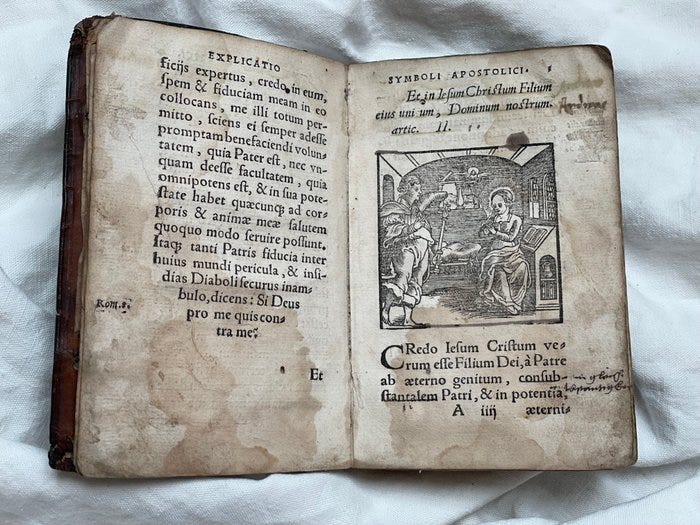 EXPLICATIO
ficijs expertus, credo in eum,
spem & fiduciam meam in eo
collocans, me illi totum per-
mitto, sciens ei semper adesse
promptam benefaciendi volun-
tatem, quia Pater est, nec vn-
quam deesse facultatem, quia
omnipotens est, & in sua pote-
state habet quæcunq; ad cor-
poris & animæ meæ salutem
quoquo modo seruire possunt.
Itaq; tanti Patris fiducia inter
huius mundi pericula, & insi-
dias Diaboli securus inam-
bulo, dicens: Si Deus
Rom. 8.
pro me quis con-
tra me?
Et
SYMBOLI APOSTOLICI.
Et in Iesum Christum Filium
eius unium, Dominum nostrum.
artic. II.
Andreas
CRedo Iesum Cristum ve-
rum esse Filium Dei, à Patre
ab æterno genitum, consub-
stantalem Patri, & in potentia,
A iiij æterni-